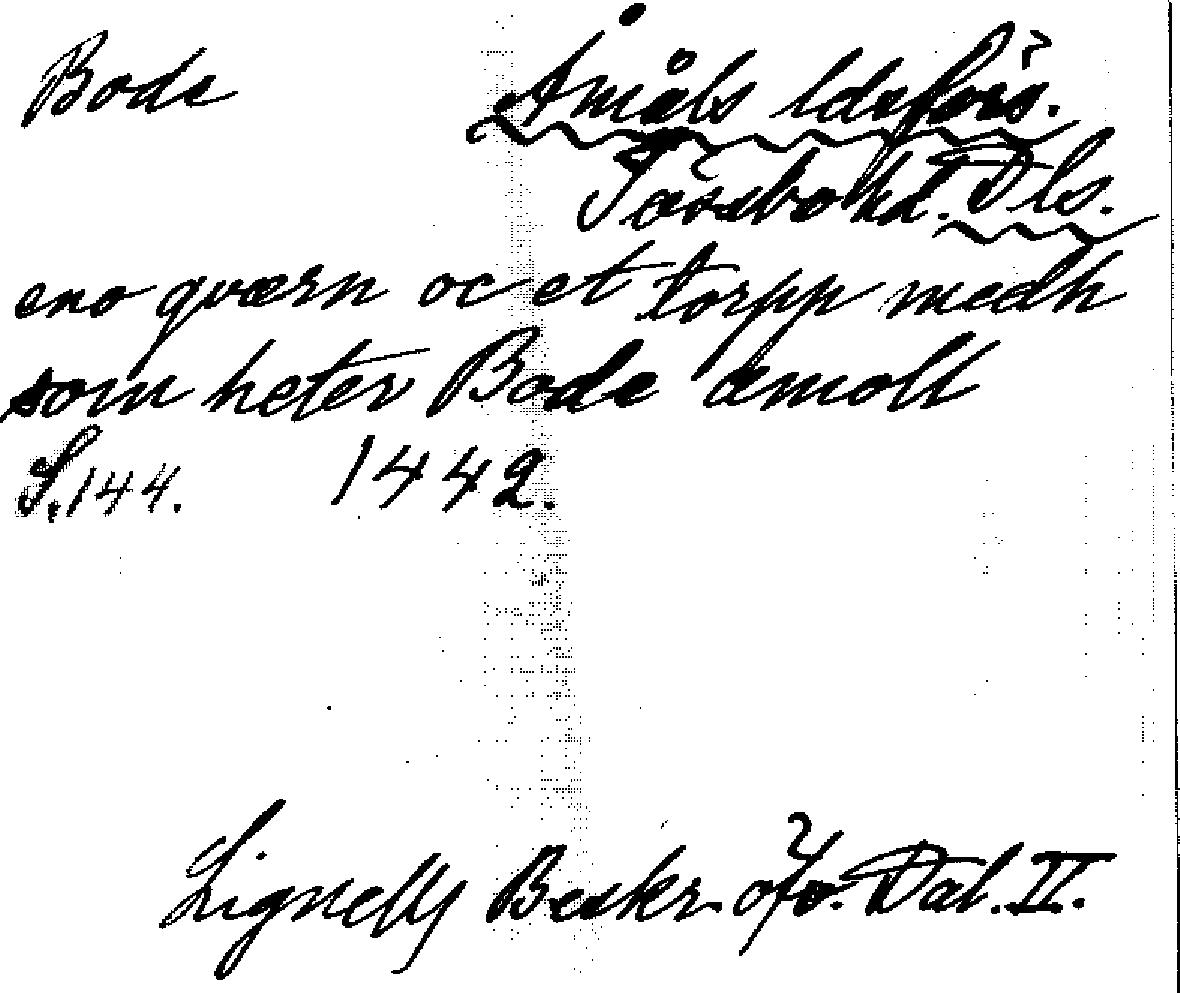 Bode Åmåls ldsförs.?
Tössbo hd. Dls.
eno qværn oc et torpp medh
som heter Bode amoll
S. 144. 1442.
Lignells Beskr. öfv. Dal. II.